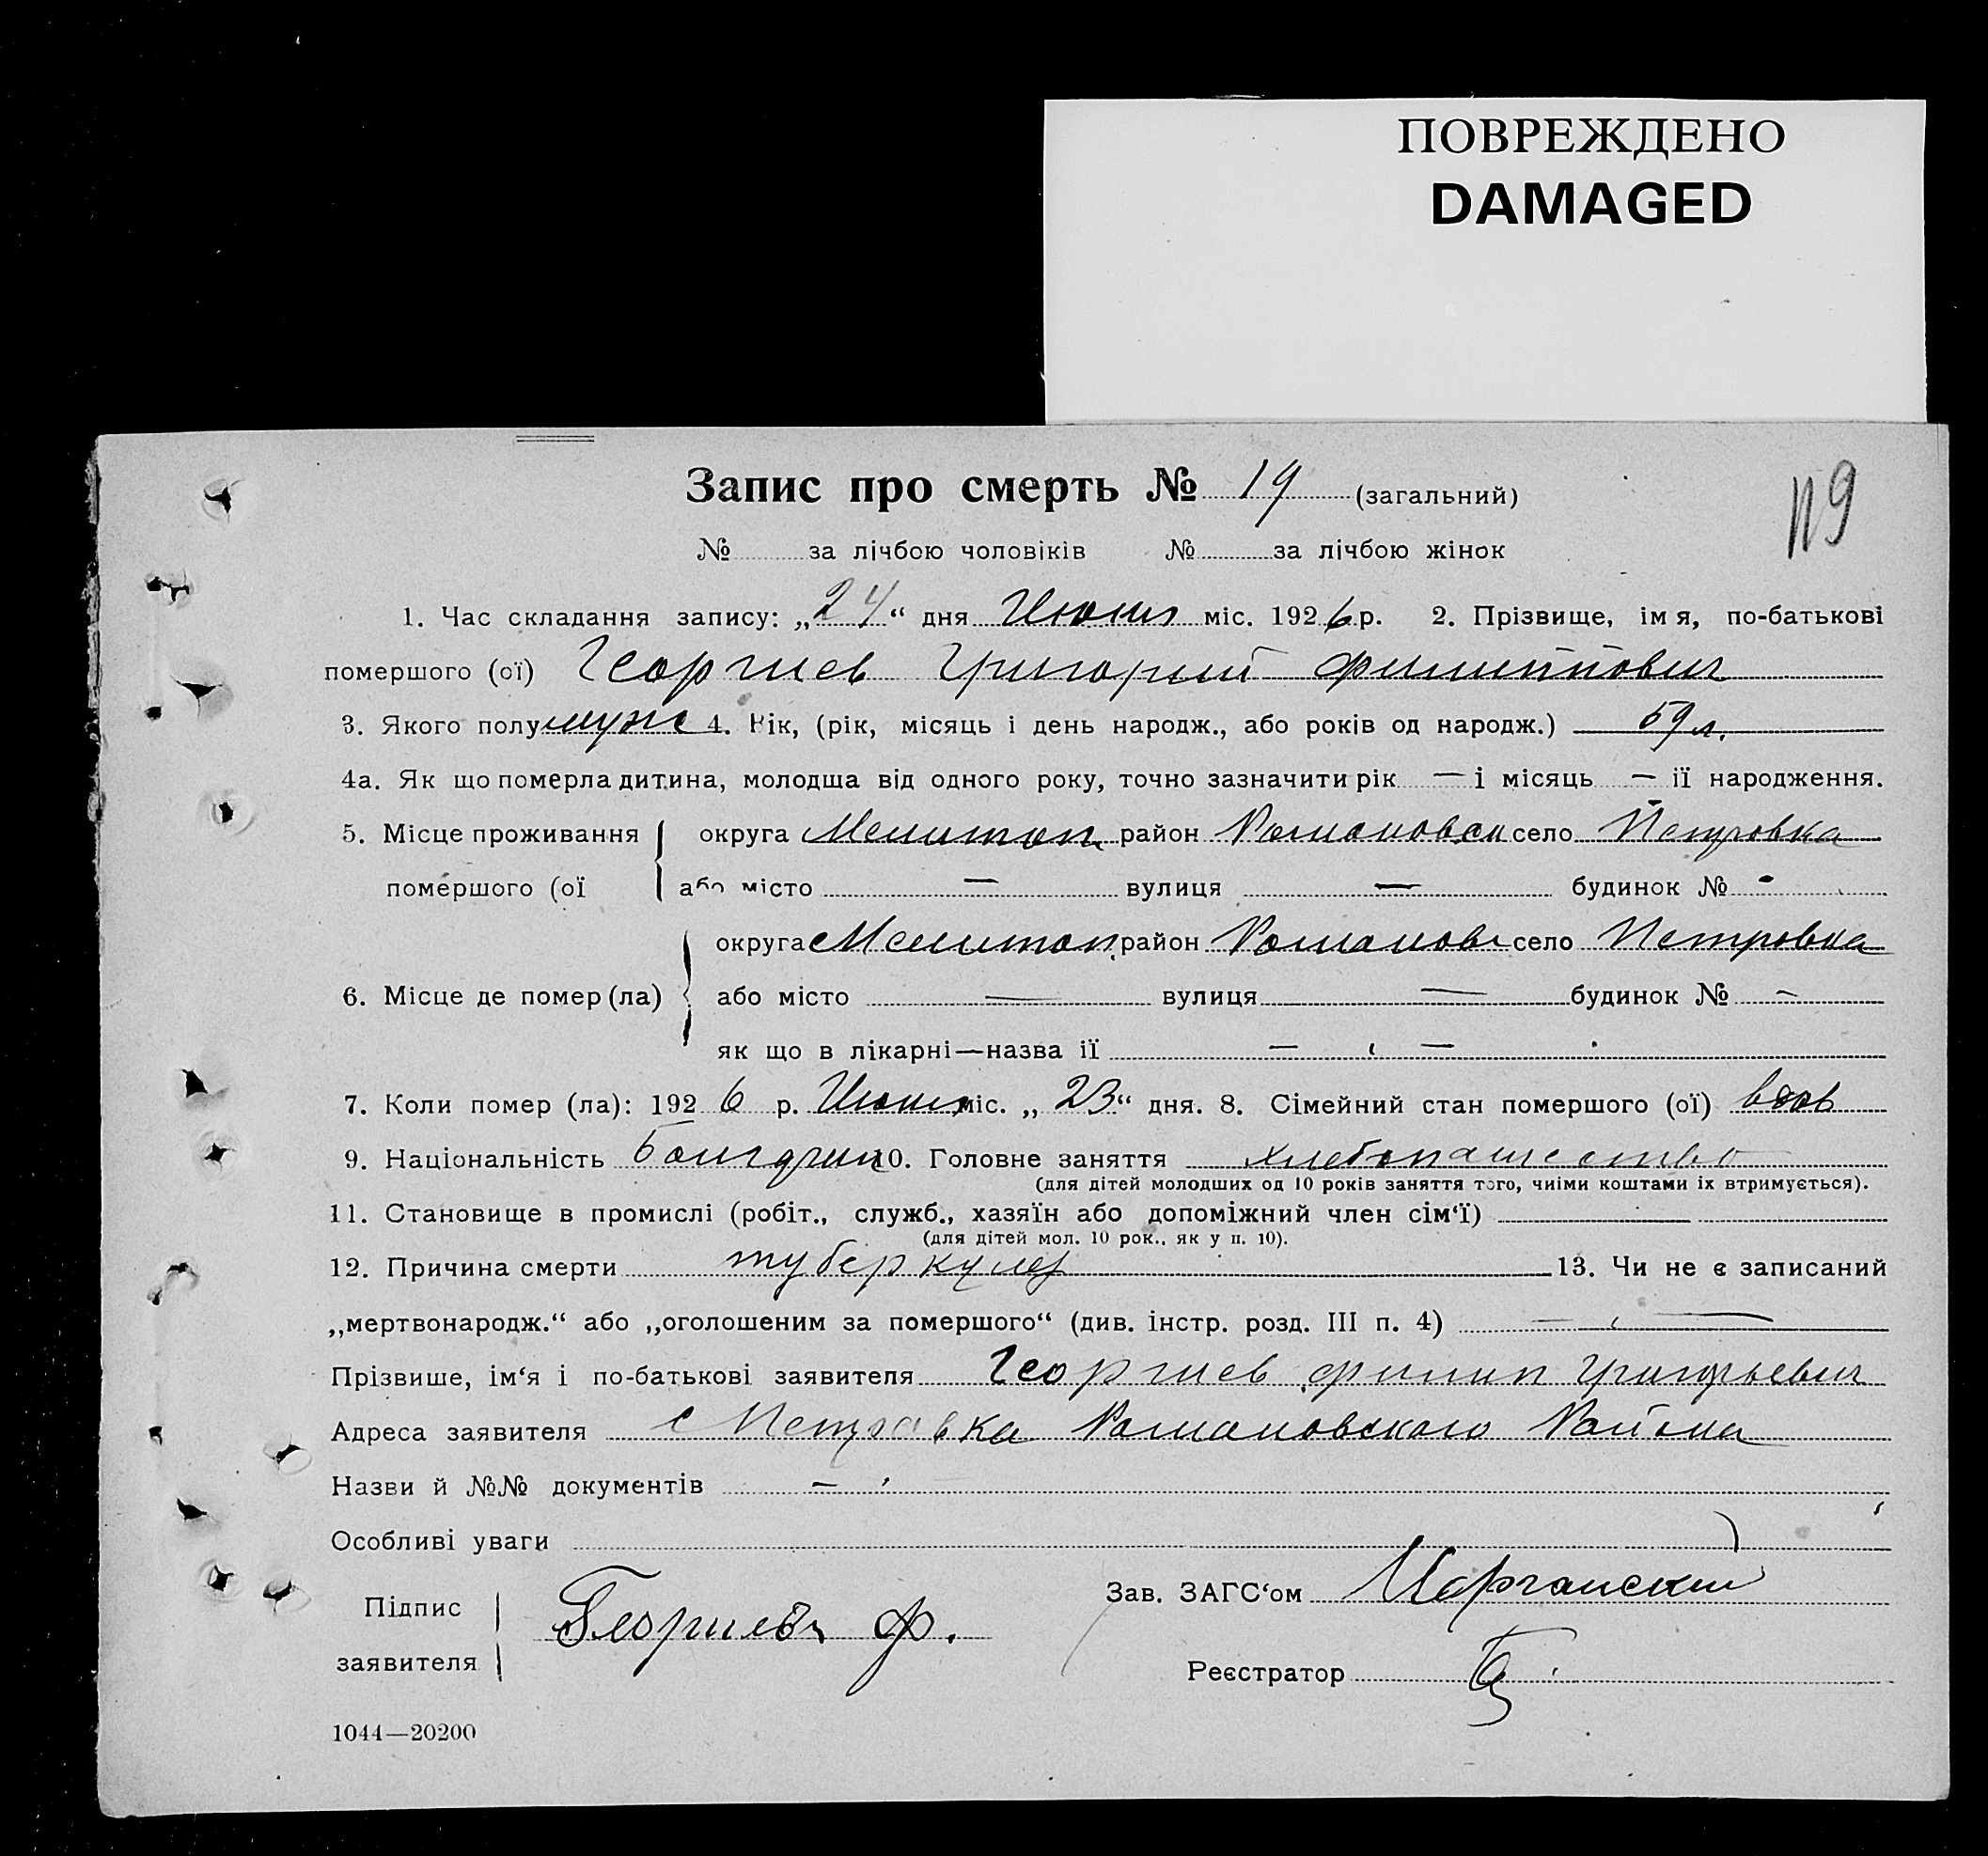 ПОВРЕЖДЕНО
DAMAGED
Запис про смерть № 19 (загальний)
119
№ за лічбою чоловіків № за лічбою жінок
1. Час складання запису: „24“ дня Июня міс. 1926 р. 2. Прізвище, ім я, по-батькові
помершого (ої) Георгиев Григорий Филиппович
3. Якого полу муж 4. Вік, (рік, місяць і день народж., або років од народж.) 59 л.
4а. Як що померла дитина, молодша від одного року, точно зазначити рік — і місяць — її народження.
5. Місце проживання округа Мелитоп. район Романовск село Петровка
помершого (ої або місто — вулиця — будинок № -
округа Мелитоп. район Романовс село Петровка
6. Місце де помер (ла) або місто — вулиця — будинок № -
як що в лікарні—назва її — —
7. Коли помер (ла): 1926 р. Июня міс. „23“ дня. 8. Сімейний стан помершого (ої) вдов
9. Національність Болгарин 10. Головне заняття хлебопашество
(для дітей молодших од 10 років заняття того, чиіми коштами іх втримується).
11. Становище в промислі (робіт., служб., хазяїн або допоміжний член сім‘ї) —
(для дітей мол. 10 рок., як у п. 10).
12. Причина смерти туберкулез 13. Чи не є записаний
„мертвонародж.“ або „оголошеним за помершого“ (див. інстр. розд. III п. 4) — —
Прізвише, ім‘я і по-батькові заявителя Георгиев Филип Григорьевич
Адреса заявителя с Петровка Романовского Района
Назви й №№ документів —
Особливі уваги
Підпис
заявителя Георгиевъ Ф.
Зав. ЗАГС‘ом
Реєстратор
1044—20200